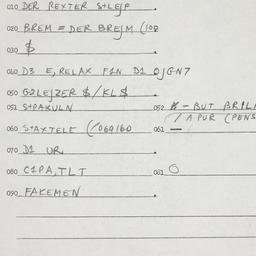 010 DER REXTER S+LEJP
020 BREM = DER BREJM (10P
030 $
040 D3 E, RELAX F1N D1 OJGN7
050 G2LEJZER $/KL$
051 S+PAKULN 052 - BUT BRILL
/ A PUR (PENS
060 S+AXTELE (/069160 061 —
070 D1 UR
080 C1PA, TLT 081 O
090 FAKEMEN